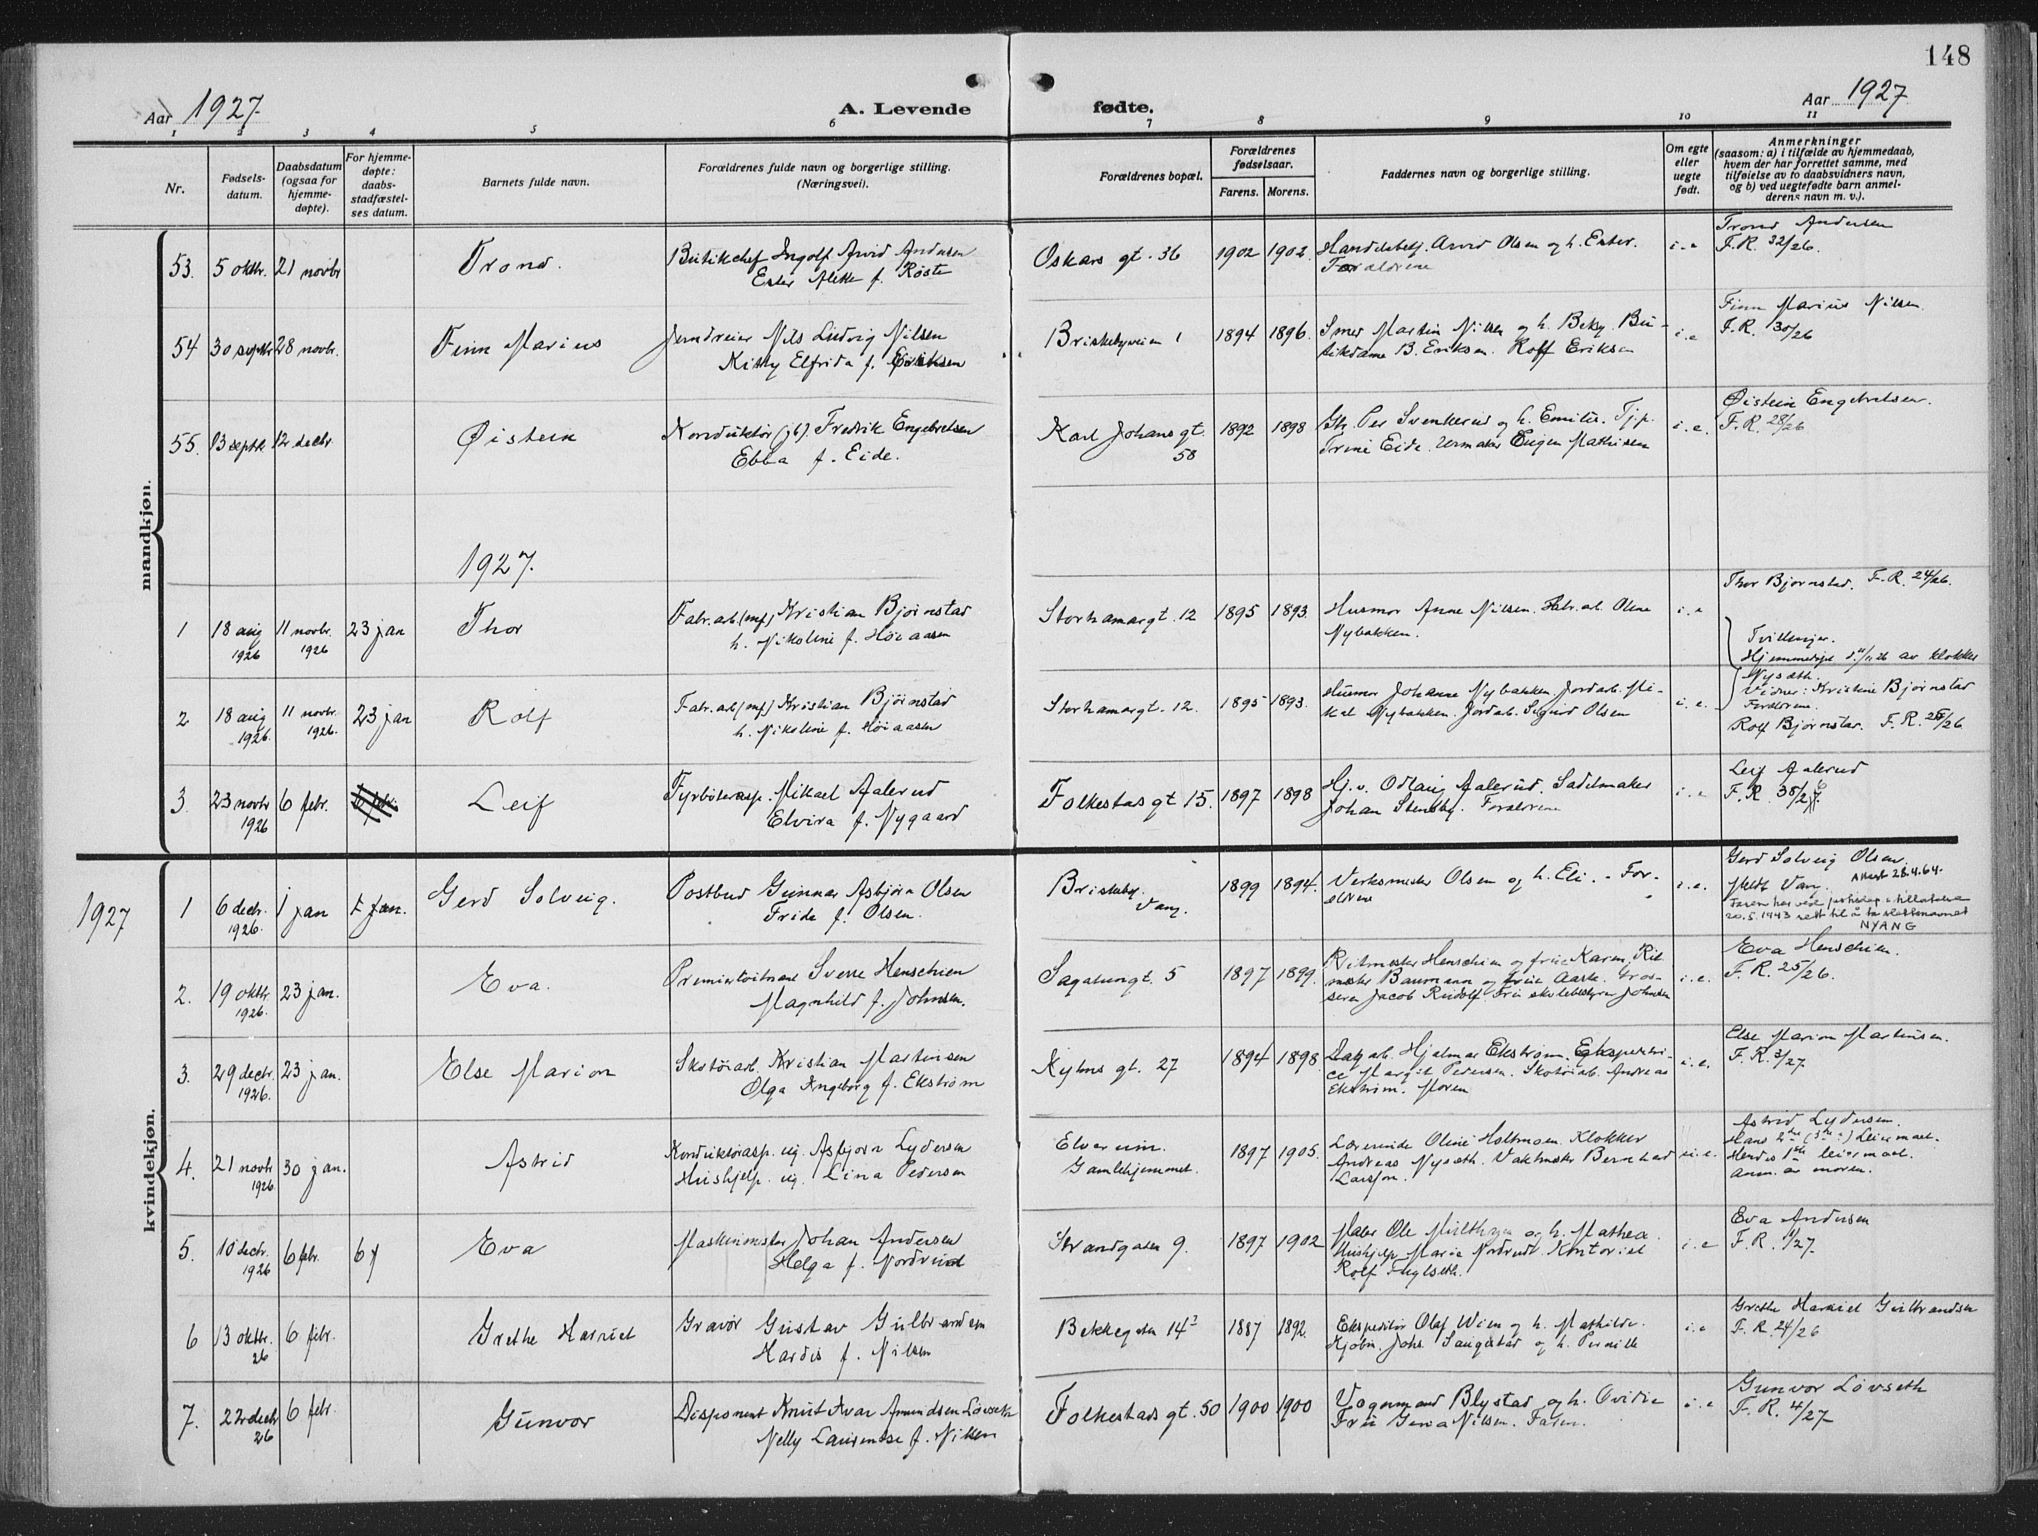 148
Aar 1927
A. Levende
fødte.
Aar 1927
1 2 3 4 5 6 7 8 9 10 11
Nr.
Fødsels-
datum.
Daabsdatum
(ogsaa for
hjemme-
døpte).
For hjemme-
døpte:
daabs-
stadfæstel-
ses datum.
Barnets fulde navn.
Forældrenes fulde navn og borgerlige stilling.
(Næringsvei).
Forældrenes bopæl.
Forældrenes
fødselsaar.
Farens. Morens.
Faddernes navn og borgerlige stilling.
Om egte
eller
uegte
født.
Anmerkninger
(saasom: a) i tilfælde av hjemmedaab,
hvem der har forrettet samme, med
tilføielse av to daabsvidners navn,
og b) ved uegtefødte barn anmel-
derens navn m. v.).
mandkjøn.
53. 5 oktbr. 21 novbr Trond.
Butikchef Ingolf Arvid Andersen
Ester f. Røste
Oskars gt. 36 1902 1902
Handelsbetj. Arvid Olsen og h. Ester.
Forældrene
i.e
Trond Andersen
F.R. 32/26.
54 30 septbr 28 novbr. Finn Marius
Jerndreier Nils Ludvig Nilsen
Kitty Elfrida f. Eriksen
Briskebyveien 1 1894 1896
Smed Martin Nilsen og h. Betsy. Bu-
tikdame B. Eriksen. Rolf Eriksen
i.e
Finn Marius Nilsen
F.R. 30/26
55. 13 septbr 12 decbr. Øistein
Konduktør (jb). Fredrik Engebretsen
Ebba f. Eide.
Karl Johans gt.
58
1892 1898
Per Svenkerud og h. Emilie. Tjp.
Trine Eide. Urmaker Eugen Mathisen
i.e.
Øistein Engebretsen
F.R. 28/26
1927.
1 18 aug 1926 11 novbr. 1926 23 jan Thor
Fabr.arb. (mf) Kristian Bjørnstad
h. Nikoline f. Høiaasen
Storhamargt. 12 1895 1893.
Husmor Anne Nilsen. Fabr.arb. Oline
Nybakken.
i.e
Thor Bjørnstad. F.R. 24/26.
Tvillinger.
Hjemmedøpt d. 11/11 26 av klokker
Nysæth.
Vidner: Kristine Bjørnstad
Forældrene.
2 18 aug 1926. 11 novbr. 1926. 23 jan Rolf
Fabr.arb (mf) Kristian Bjørnstad
h. Nikoline f. Høiaasen
Storhamargt. 12. 1895 1893.
Husmor Johanne Nybakken. Jordarb. Mi-
kal Nybakken. Jordarb. Sigurd Olsen
i.e.
Rolf Bjørnstad. F.R. 25/26
3. 23 novbr 1926 6 febr. Leif
Fyrbøterasp. Mikael Aalerud
Elvira f. Nygaard
Folkestads gt 15. 1897 1898
Hj.v. Odlaug Aalerud. Sadelmaker
Johan Stensby. Forældrene
i.e
Leif Aalerud
F.R. 38/26
kvindekjøn.
1927
1 6 decbr. 1926. 1 jan 1 jan. Gerd Solveig.
Postbud Gunnar Asbjørn Olsen
Frida f. Olsen.
Briskeby.
Vang.
1899 1894.
Verksmester Olsen og h. Eli. - For-
ældrene
i.e.
Gerd Solveig Olsen.
Meldt Vang. Attest 28.4.64.
Faren har ved justisdep.s tillatelse
20.5.1943 rett til å ta slektsnavnet
NYANG
2. 19 oktbr. 1926. 23 jan. Eva.
Premierløitnant Sverre Henschien
Magnhild f. Johnsen.
Sagatungt. 5 1897 1899.
Ritmester Henschien og frue Karen, Rit-
mester Baumann og frue Aasta. Gros-
serer Jacob Rudolf. Fru skolebestyrer Johnsen
i.e.
Eva Henschien.
F.R. 25/26.
3. 29 decbr. 1926. 23 jan. Else Marion
Skotøiarb. Kristian Martinsen
Olga Ingeborg f. Ekstrøm
Kyhns gt. 27 1894 1898.
Dagarb. Hjalmar Ekstrøm. Ekspeditri-
ce Margit Pedersen. Skotøiarb. Andreas
Ekstrøm. Moren
i.e.
Else Marion Martinsen.
F.R. 3/27
4. 21 novbr 1926 30 jan. Astrid
Konduktørasp. ug. Asbjørn Lydersen
Hushjelp. ug. Lina Pedersen
Elverum.
Gamlehjemmet.
1897 1905.
Lærerinde Oline Holtmoen. Klokker
Andreas Nysæth. Vaktmester Bernhard
Larsson.
u.e.
Astrid Lydersen.
Hans 2det (3die?) leiermaal.
Hendes 1ste leiermaal.
Anm. av moren.
5. 10 decbr. 1926 6 febr. 6 f Eva
Maskinmester Johan Andersen
Helga f. Nordrud
Strandgaten 9. 1897 1902
Maler Ole Milthagen og h. Mathea.
Hushjelp Marie Nordrud. Kontorist
Rolf Fuglseth.
i.e
Eva Andersen
F.R. 1/27.
6 13 oktbr. 26 6 febr. Grethe Harriet
Gravør Gustav Gulbrandsen
Hardis f. Nilsen
Bekkegaten 14 1887 1892.
Ekspeditør Olaf Wien og h. Mathilde.
Kjøbm. Johs. Saugstad og h. Pernille
i.e
Grethe Harriet Gulbrandsen
F.R. 24/26
7. 22 decbr 26 6 febr. Gunvor
Disponent Knut Ivar Amundsen Løvseth
Nelly Laurentse f. Nilsen
Folkestads gt. 50 1900 1900
Vognmand Blystad og h. Ovidia
Fru Gena Nilsen. Faren.
i.e
Gunvor Løvseth
F.R. 4/27